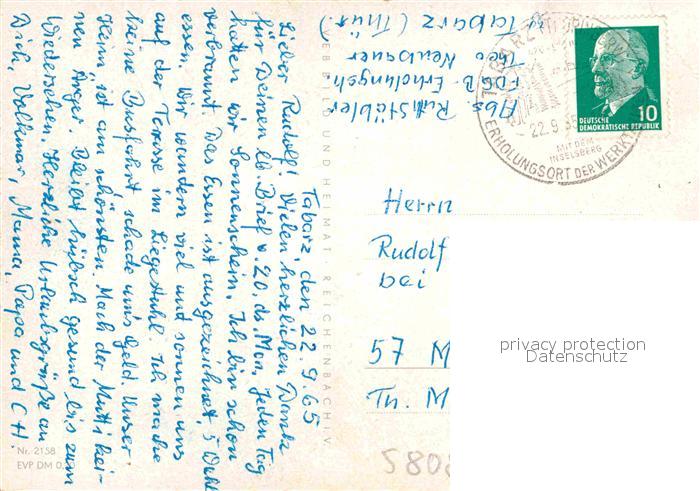 Tabarz, den 22.9.65
Lieber Rudolf! Vielen herzlichen Dank
für Deinen lb. Brief v. 20. ds. Mon. Jeden Tag
hatten wir Sonnenschein. Ich bin schon
verbrannt. Das Essen ist ausgezeichnet, 5 Wahl
essen. Wir wandern viel und sonnen uns
auf der Terasse im Liegestuhl. Ich mache
keine Busfahrt schade um's Geld. Unser
Heim ist am schönsten. Mach der Mutti kei-
nen Ärger. Bleibt hübsch gesund bis zum
Wiedersehen. Herzliche Urlaubsgrüße an
Dich, Volkmar, Mama, Papa und CH.
Nr. 2158
EVP DM 0,20
VEB BILD UND HEIMAT REICHENBACH I. V.
Abs. Ruth Stübler
FDGB-Erholungsh.
Theo Neubauer
Tabarz (Thür.)
TABARZ
22.9.65
MIT DEM
INSELSBERG
ERHOLUNGSORT DER WERKT
10
DEUTSCHE
DEMOKRATISCHE REPUBLIK
Herrn
Rudolf
bei
57 M
Th. M
privacy protection
Datenschutz